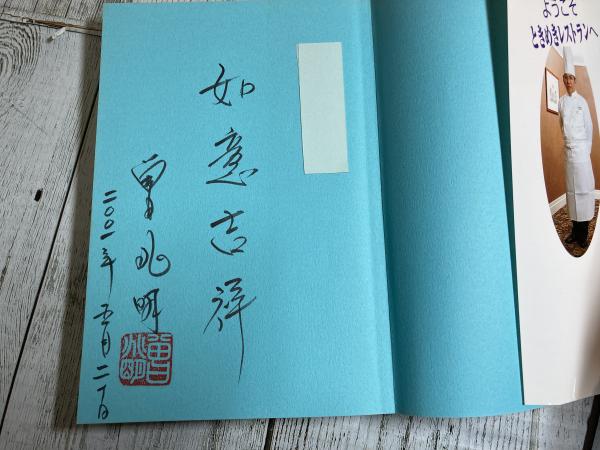 ようこそ
ときめきレストランへ
如意吉祥
曾兆明
二〇〇一年五月二十日
曾兆明